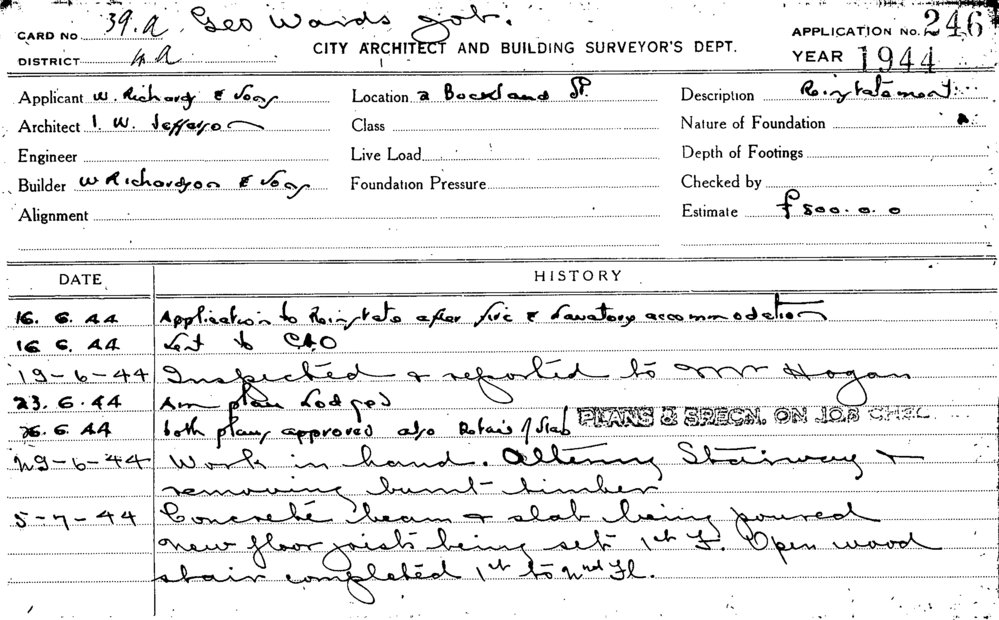 CARD NO 39.A Geo Wards job. APPLICATION NO. 246
CITY ARCHITECT AND BUILDING SURVEYOR'S DEPT.
DISTRICT 4A YEAR 1944
Applicant W. Richards & Sons Location 2 Bockland St. Description Reinstatement
Architect I. W. Jefferson Class Nature of Foundation
Engineer Live Load Depth of Footings
Builder W Richardson & Sons Foundation Pressure Checked by
Alignment Estimate £500.0.0
DATE HISTORY
16. 6. 44 Application to Reinstate after fire & Lavatory accommodation
16 6. 44 Sent to CAO
19-6-44 Inspected & reported to Mr Hogan
23. 6. 44 Am plan Lodged
26. 6. 44 both plans approved also Details of Slab PLANS & SPECN. ON JOB
29-6-44 Work in hand. Altering Stairway &
removing burnt timber
5-7-44 Concrete beam & slab being poured
New floor joist being set 1st F. Open wood
stair completed 1st to 2nd Fl.